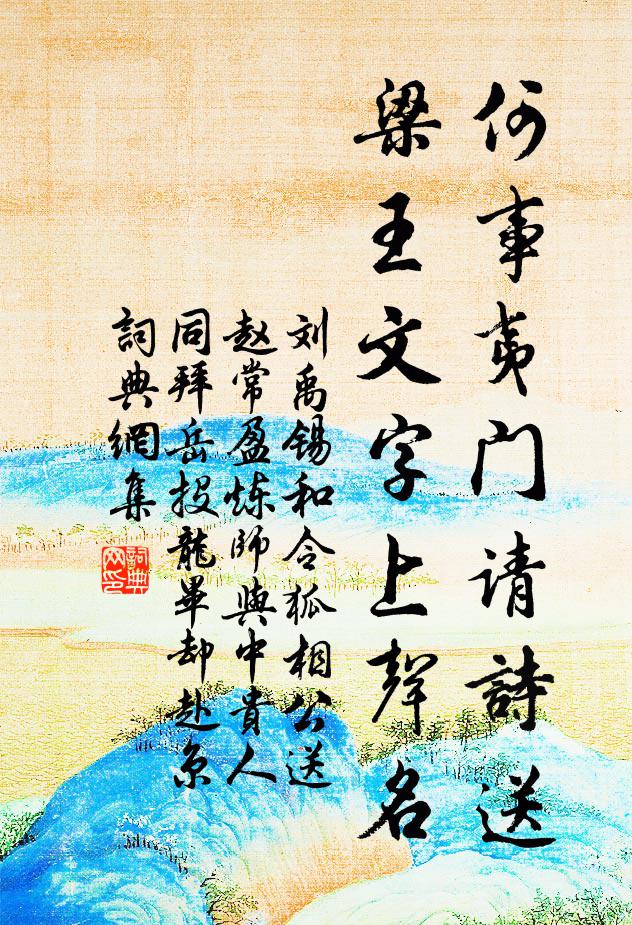 何事夷门请詩送
梁王文字上聲名
刘禹锡和令狐相公送
赵常盈炼师與中貴人
同拜岳投龍畢却赴京
詞典網集
詞典
网印